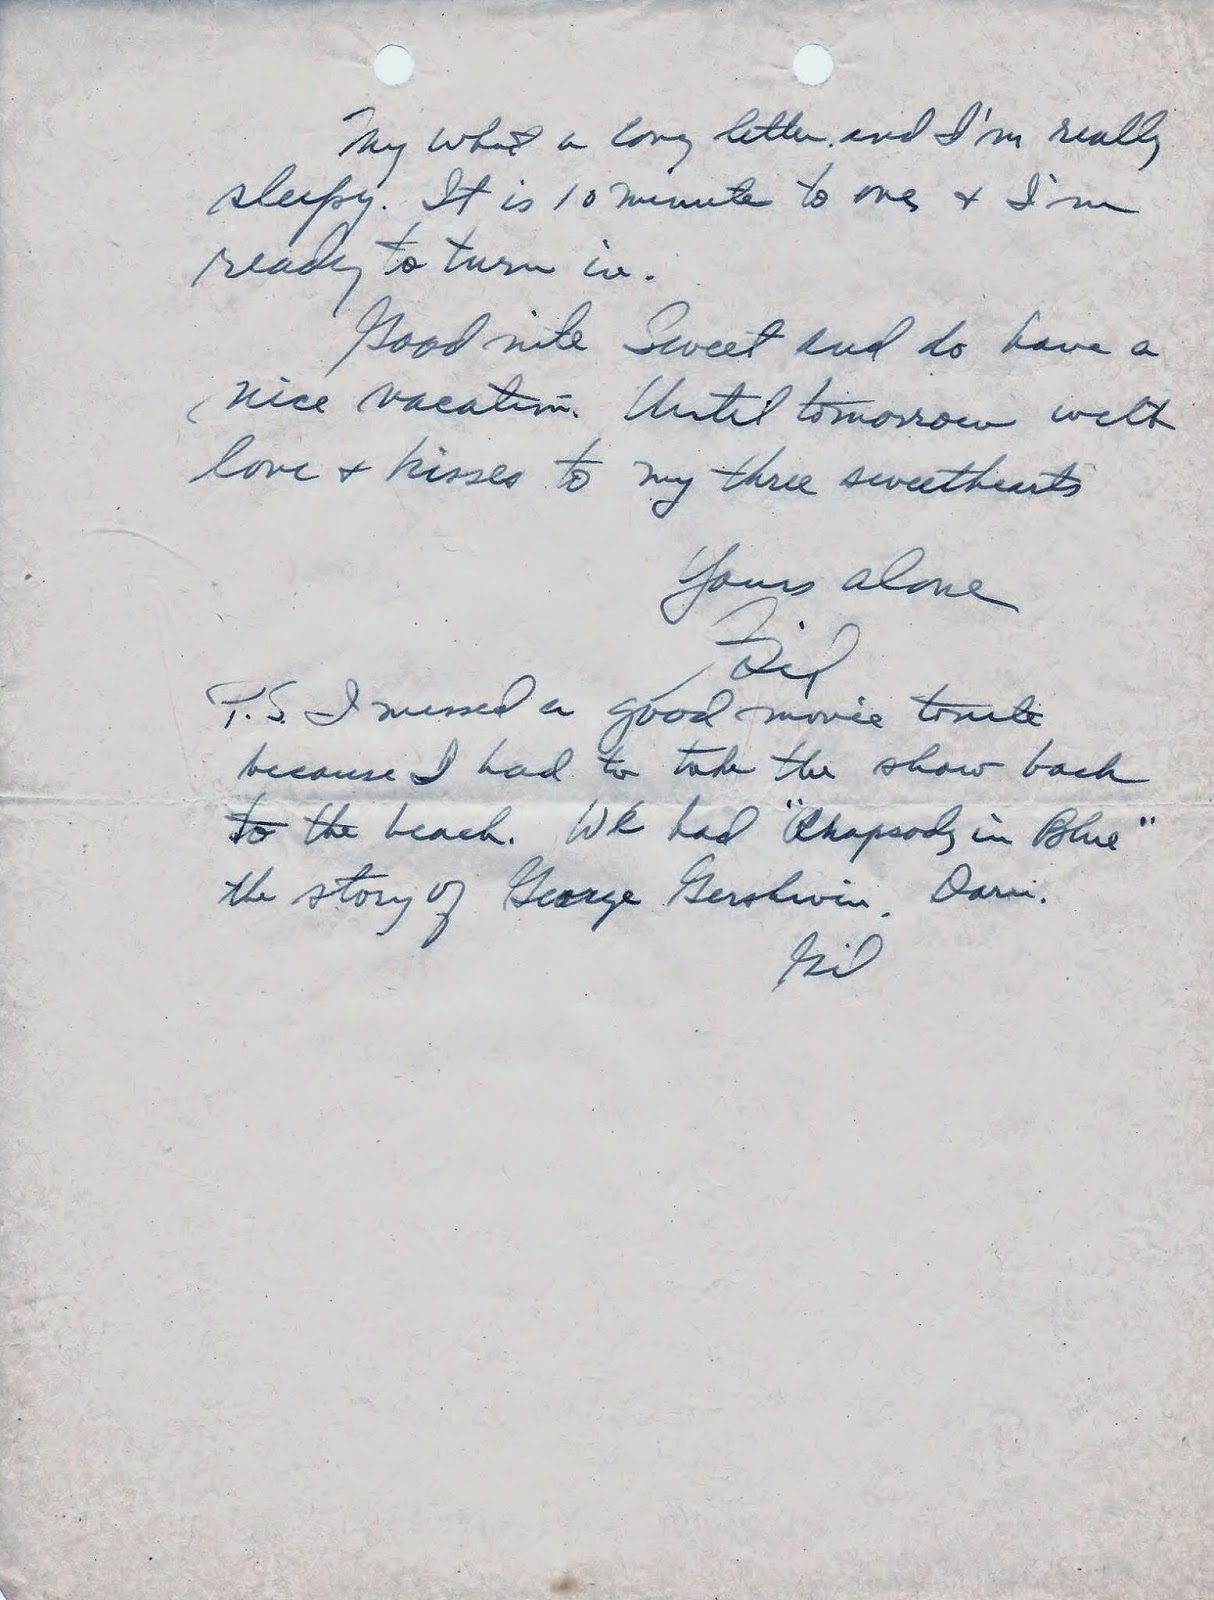 My what a long letter and I'm really
sleepy. It is 10 minute to one, + I'm
ready to turn in.
Good nite Sweet and do have a
nice vacation. Until tomorrow with
love + kisses to my three sweethearts
Yours alone
Gil
P.S. I missed a good movie tonite
because I had to take the show back
to the beach. We had "Rhapsody in Blue"
the story of George Gershwin. Darn.
Gil